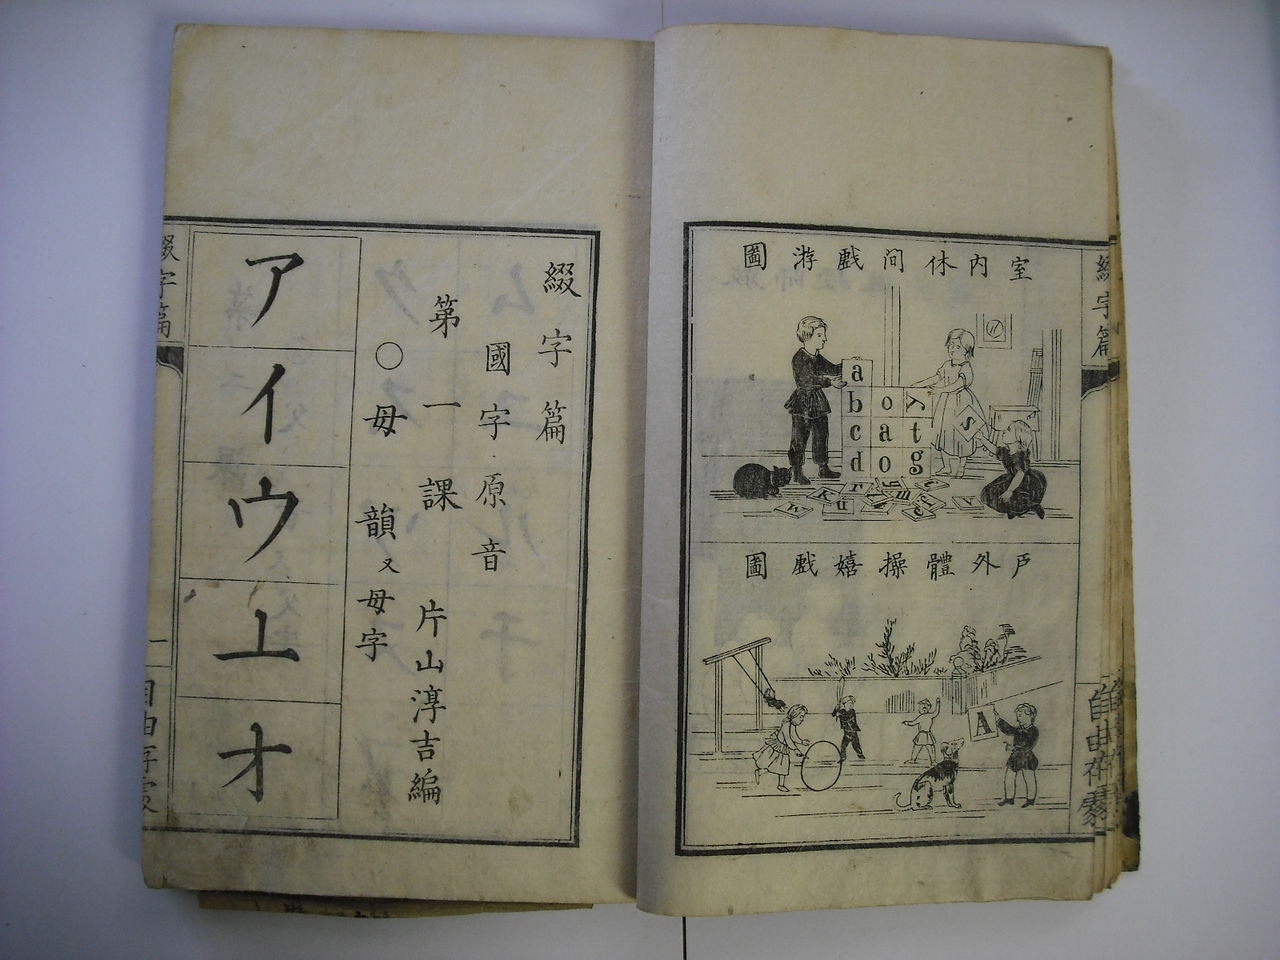 室内休间戲游圖
a
b o y
c a t
d o g
s
戸外體操嬉戲圖
A
綴字篇
綴字篇
國字原音
第一課 片山淳吉編
○母韻又母字
ア
イ
ウ
エ
オ
綴字篇
一